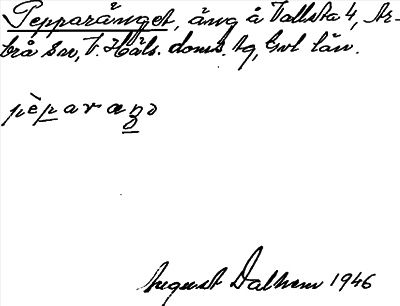 Pepparänget, äng å Vallsta 4, Ar-
brå sn, V. Häls. doms. tg, Gvl län.
pèparaŋə
August Dalhem 1946